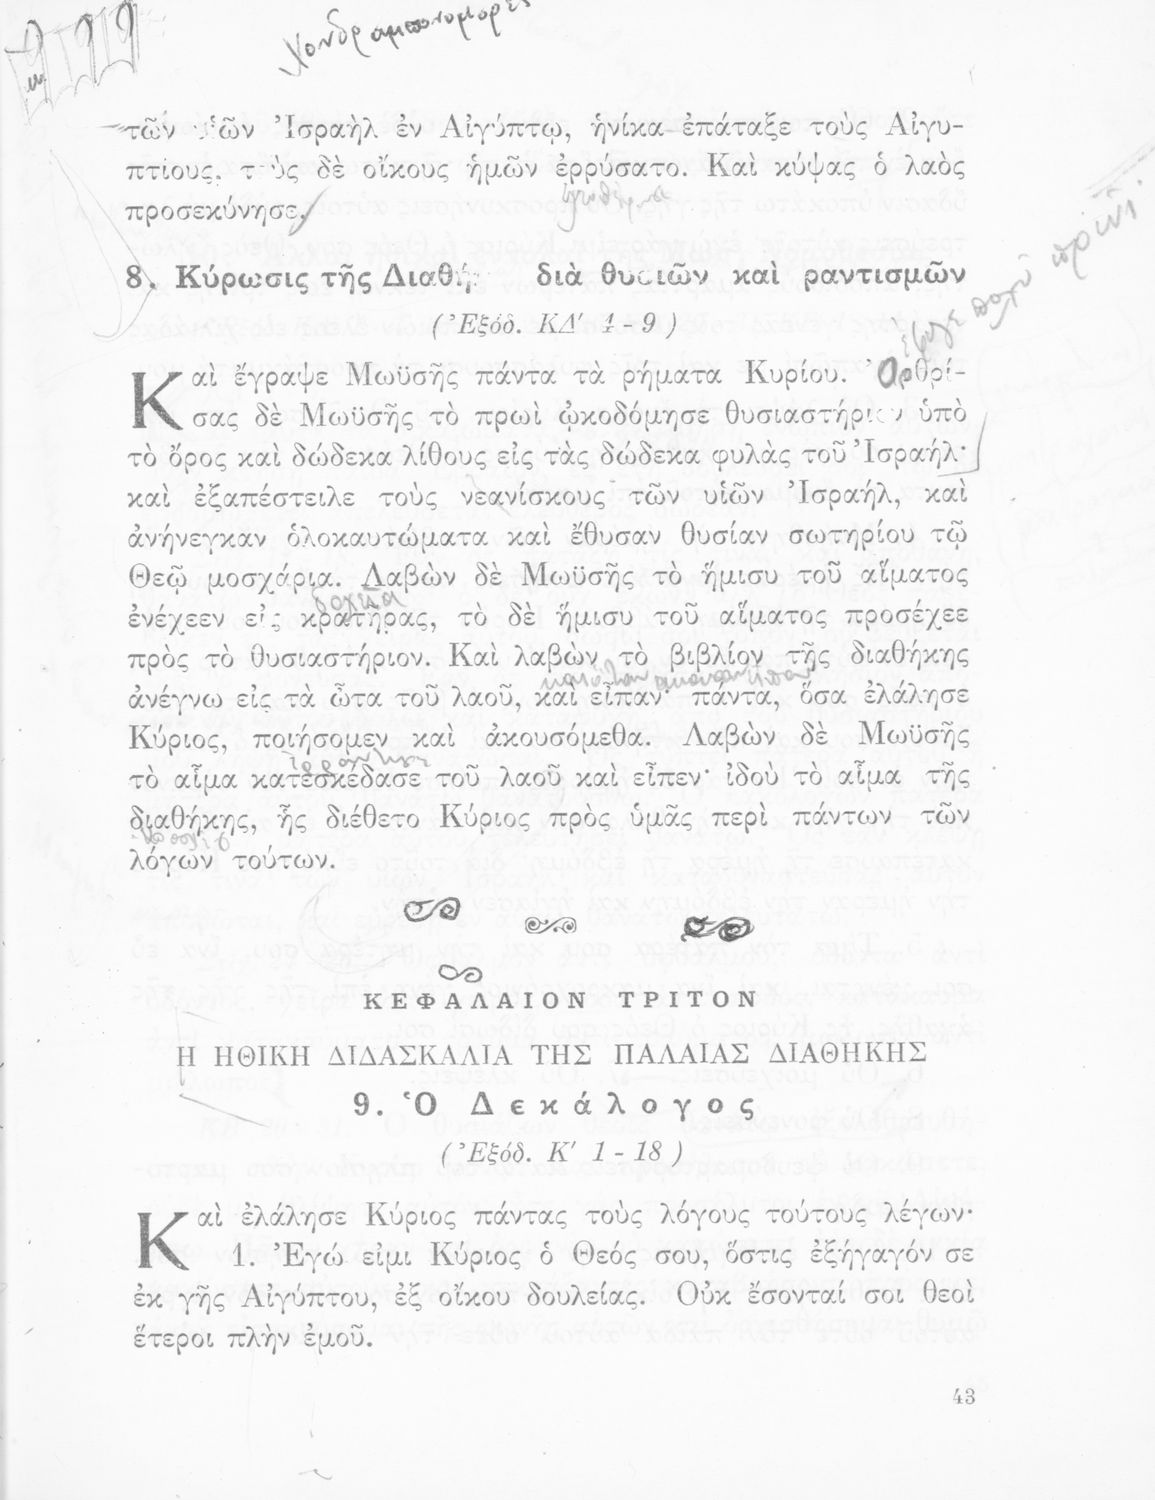 τῶν υἱῶν Ἰσραὴλ ἐν Αἰγύπτῳ, ἡνίκα ἐπάταξε τοὺς Αἰγυ-
πτίους, τοὺς δὲ οἴκους ἡμῶν ἐρρύσατο. Καὶ κύψας ὁ λαὸς
προσεκύνησε.
8. Κύρωσις τῆς Διαθή διὰ θυσιῶν καὶ ραντισμῶν
(Ἐξόδ. ΚΔ' 4 - 9)
ἔφυγε πολὺ πρωί
Καὶ ἔγραψε Μωϋσῆς πάντα τὰ ρήματα Κυρίου. Ὀρθρί-
σας δὲ Μωϋσῆς τὸ πρωὶ ᾠκοδόμησε θυσιαστήριον ὑπὸ
τὸ ὄρος καὶ δώδεκα λίθους εἰς τὰς δώδεκα φυλὰς τοῦ Ἰσραήλ·
καὶ ἐξαπέστειλε τοὺς νεανίσκους τῶν υἱῶν Ἰσραήλ, καὶ
ἀνήνεγκαν ὁλοκαυτώματα καὶ ἔθυσαν θυσίαν σωτηρίου τῷ
Θεῷ μοσχάρια. Λαβὼν δὲ Μωϋσῆς τὸ ἥμισυ τοῦ αἵματος
δοχεῖα
ἐνέχεεν εἰς κρατῆρας, τὸ δὲ ἥμισυ τοῦ αἵματος προσέχεε
πρὸς τὸ θυσιαστήριον. Καὶ λαβὼν τὸ βιβλίον τῆς διαθήκης
ἀνέγνω εἰς τὰ ὦτα τοῦ λαοῦ, καὶ εἶπαν· πάντα, ὅσα ἐλάλησε
Κύριος, ποιήσομεν καὶ ἀκουσόμεθα. Λαβὼν δὲ Μωϋσῆς
τὸ αἷμα κατεσκέδασε τοῦ λαοῦ καὶ εἶπεν· ἰδοὺ τὸ αἷμα τῆς
διαθήκης, ἧς διέθετο Κύριος πρὸς ὑμᾶς περὶ πάντων τῶν
λόγων τούτων.
ΚΕΦΑΛΑΙΟΝ ΤΡΙΤΟΝ
Η ΗΘΙΚΗ ΔΙΔΑΣΚΑΛΙΑ ΤΗΣ ΠΑΛΑΙΑΣ ΔΙΑΘΗΚΗΣ
9. Ὁ Δεκάλογος
(Ἐξόδ. Κ' 1 - 18)
Καὶ ἐλάλησε Κύριος πάντας τοὺς λόγους τούτους λέγων·
1. Ἐγώ εἰμι Κύριος ὁ Θεός σου, ὅστις ἐξήγαγόν σε
ἐκ γῆς Αἰγύπτου, ἐξ οἴκου δουλείας. Οὐκ ἔσονταί σοι θεοὶ
ἕτεροι πλὴν ἐμοῦ.
43